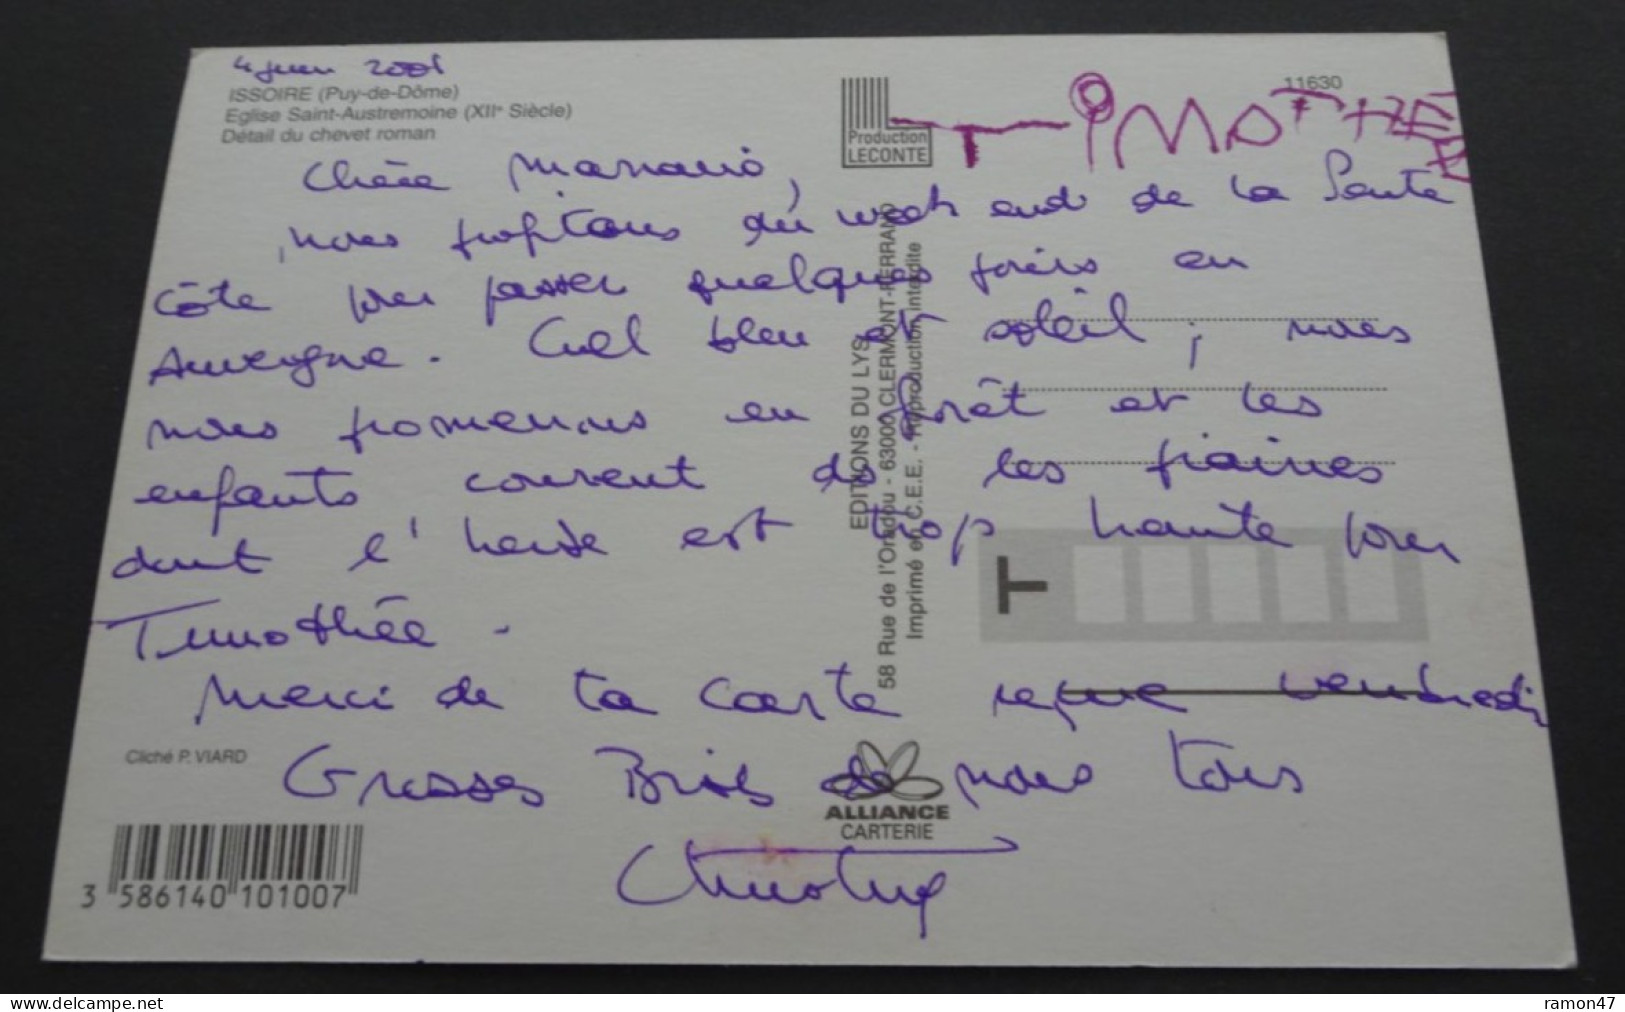 4 juin 2001
ISSOIRE (Puy-de-Dôme)
Eglise Saint-Austremoine (XIIe Siècle)
Détail du chevet roman
Production
LECONTE
11630
TIMOTHEE
Chère
nous profitons du week end de la Pente
côte pour passer quelques jours en
Auvergne. Ciel bleu et soleil ; nous
nous promenons en forêt et les
enfants courent ds les prairies
dont l'herbe est trop haute pour
Timothée.
Merci de ta carte reçue vendredi
Grosses Bises de nous tous
EDITIONS DU LYS
58 Rue de l'Oradou - 63000 CLERMONT-FERRAND
Imprimé en C.E.E. - Reproduction interdite
T
Cliché P. VIARD
ALLIANCE
CARTERIE
3 586140 101007
www.delcampe.net
ramon47